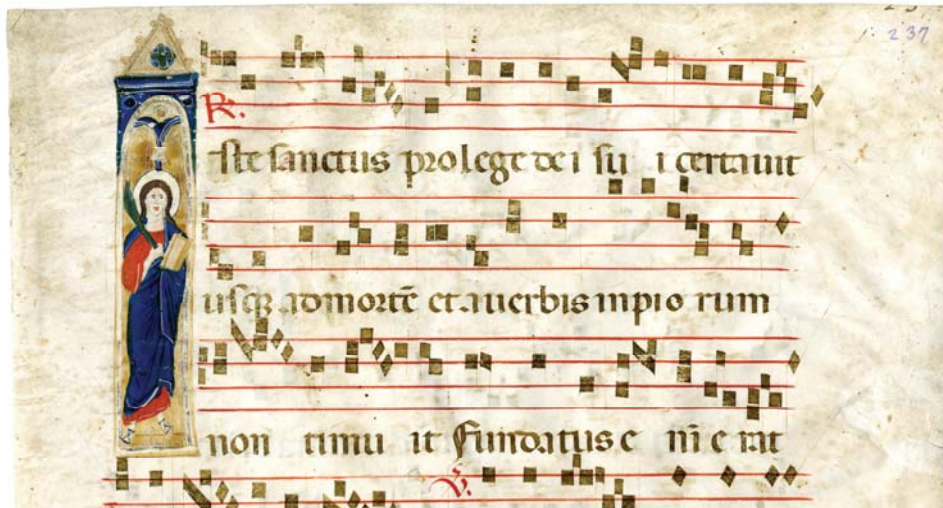 237
R.
Iste sanctus pro lege dei su i certauit
usq; ad mortē et a uerbis inpio rum
non timu it Fundatus e ni e rat
V.